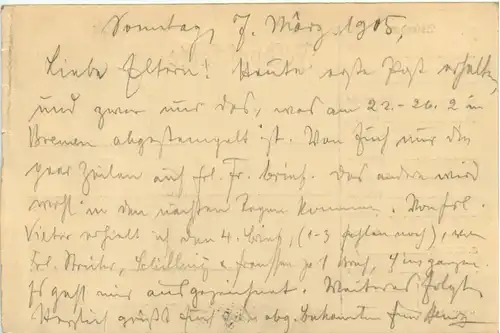 Sonntag, 7. März 1915,
Liebe Eltern! Heute erste Post erhalten,
und zwar nur das, was am 22.-26. 2 in
Bremen abgestempelt ist. Von Euch nur die
paar Zeilen auf Frl. Fr. brief. Das andere wird
wohl in den nächsten Tagen kommen. Von Frl.
Vietor erhielt ich den 4. brief, (1-3 fehlen noch), von
Frl. je 1 brief,
Es geht mir ausgezeichnet. Weiteres folgt.
Herzlich grüßt Euch Bekannten Euer